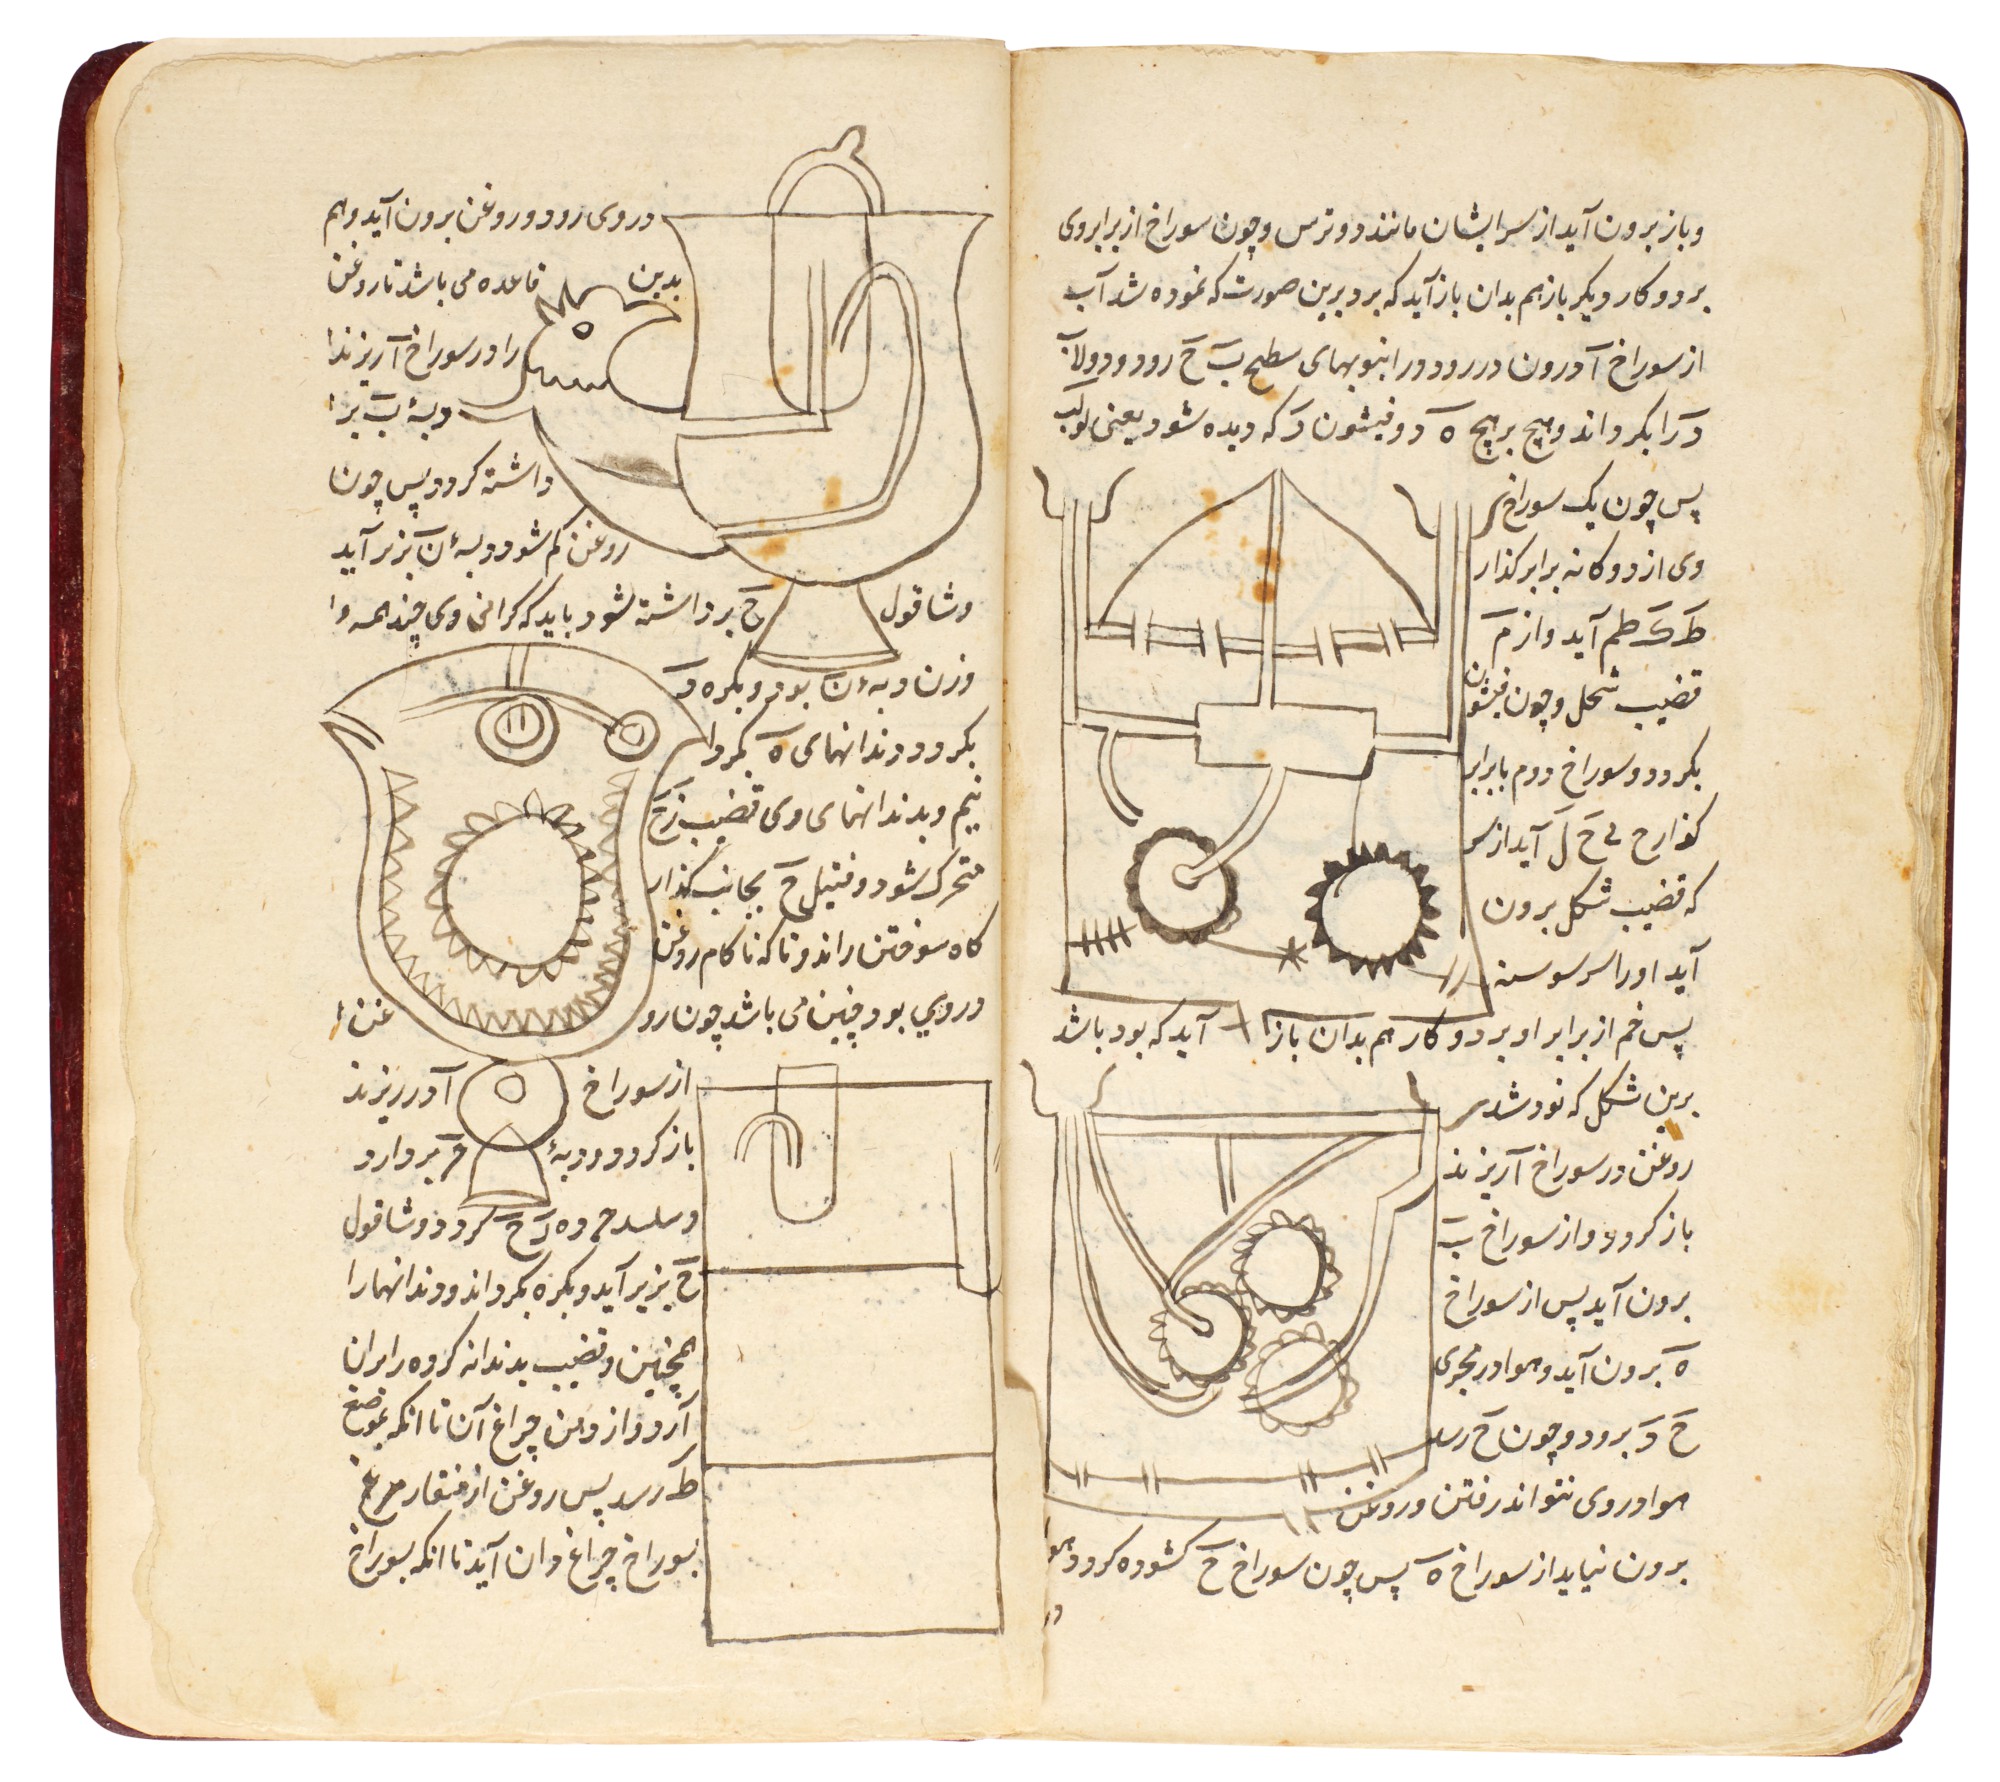 و باز برون آید از سر ایشان مانند دو ترس و چون سوراخ از برابر وی
بر دو کار دیکر باز هم بدان باز آید که برد برین صورت که نموده شد آب
از سوراخ آ درون در رود در انبوبهای سطیح ب ح رود و دولاب
د را بکرداند و هیچ بر هیچ ه د و فیثون د که دیده شود یعنی
پس چون یک سوراخ
وی از دوکانه برابر کذار
ط ک طم آید و از م
قضیب شکل و چون فیثون
بکردد و سوراخ دوم بابرابر
آید از سر
که قضیب شکل برون
آید او را سر سوسن
پس خم از برابر او بر دو کار هم بدان باز آید که بود باشد
برین شکل که نود شد
روغن در سوراخ آ ریزند
باز کردد و از سوراخ ب
برون آید پس از سوراخ
ه برون آید و هوا در مجری
ح د برود و چون ح رسد
هوا در وی نتواند رفتن و روغن
برون نیاید از سوراخ ه پس چون سوراخ ح کشوده کردد هوا
در
در وی رود و روغن برون آید و هم
بدین قاعده می باشد تا روغن
را در سوراخ آ ریزند
دبهٔ ب بر
داشته کردد پس چون
روغن کم شود دبهٔ ن بزیر آید
و شاقول ح برداشته شود باید که کرانی وی چند همه
وزن دبهٔ ن بود و بکره د
بکردد و دندانهای ه بکردا
نیم و بدندانهای وی قضیب ز ح
متحرک شود و فتیل ح بجانب کذار
کاه سوختن راند و تا که ناکام روغن
در وی بود چنین می باشد چون رو غن
از سوراخ آ در ریزند
باز کردد و دبهٔ م بر دارد
و شاقول
ح بزیر آید و بکره بکرداند و دندانها را
همچنین و قضیب بدندانه کروه را بران
آرد و از دهن چراغ آن تا انکه بموضع
ط رسد پس روغن از منقار مرغ
بسوراخ چراغ دان آید تا انکه بسوراخ